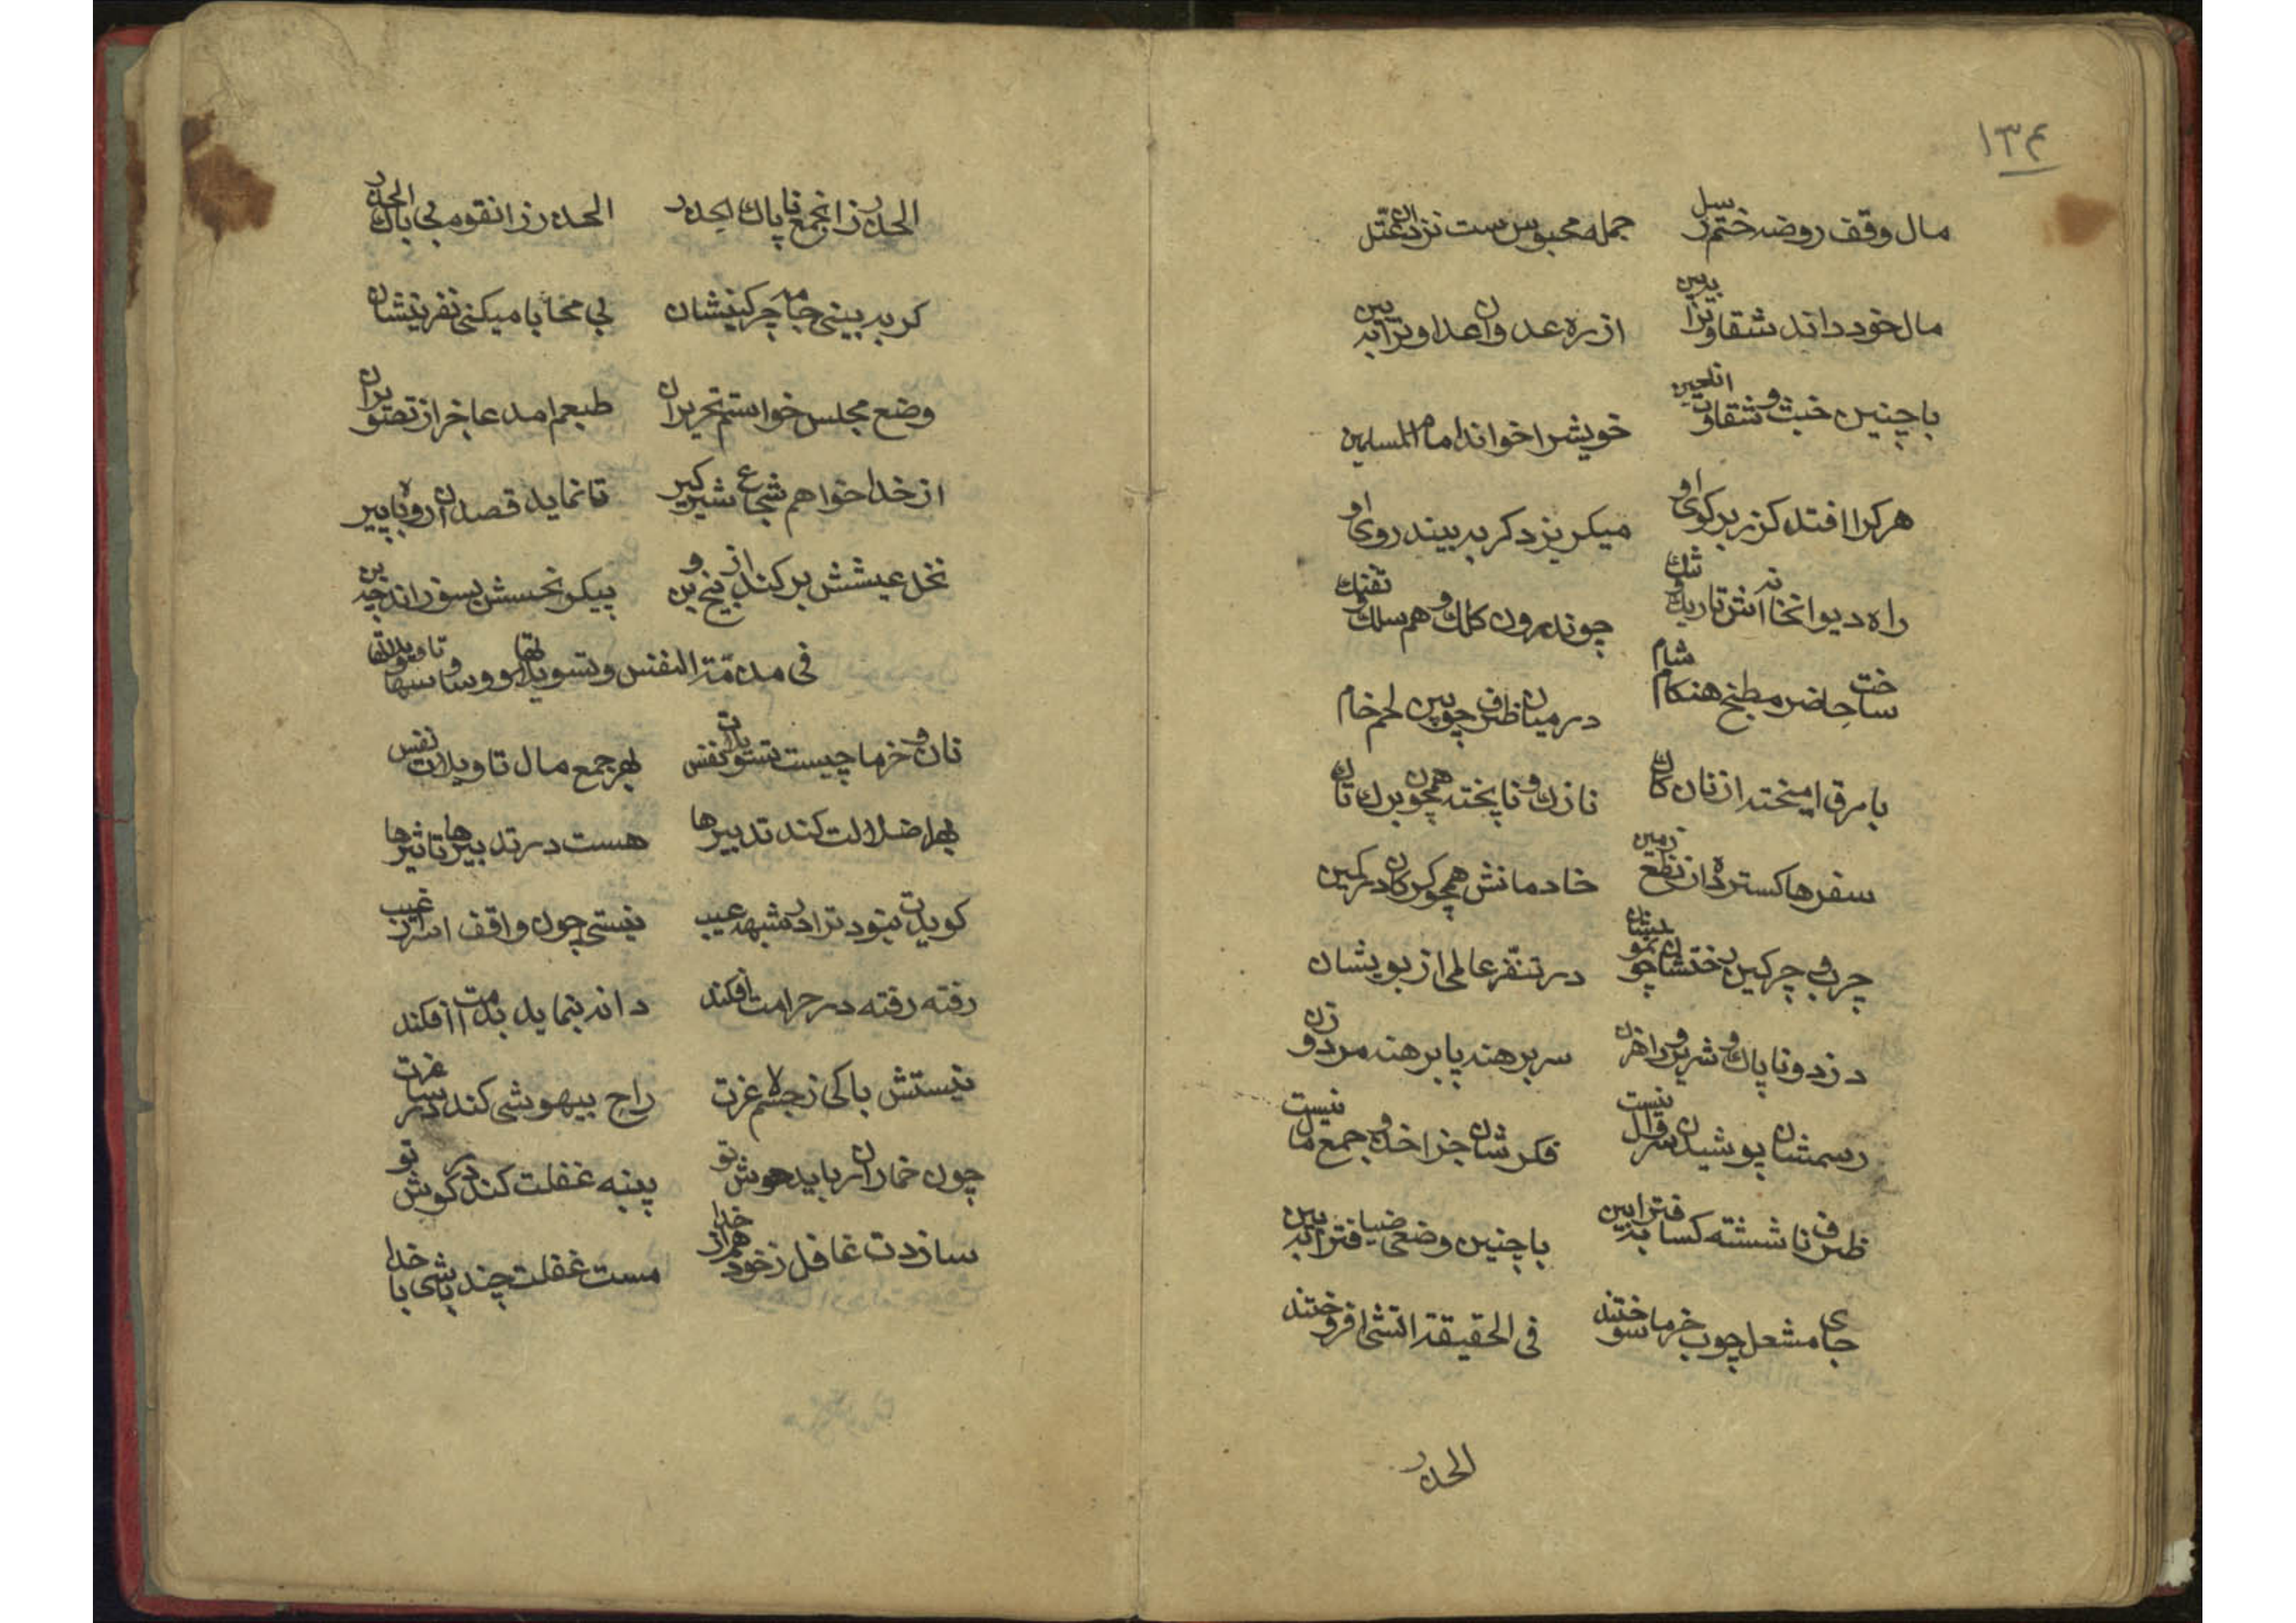 ۱۳۴
مال وقف روضه ختم رسل جمله محبوس ست نزد ان عتل
مال خود داند شقاوت را ببین از ره عدوان عداوت را ببین
با چنین خبث و شقاوت انلعین خویشرا خواند امام المسلمین
هر کرا افتد کزر بر کوی او میکریزد کر ببیند روی او
راه دیوانخانه اش تاریک و تنک چوندرون کلک و هم سلک تفنک
ساخت حاضر مطبخ هنکام شام در میان ظرف چوبین لحم خام
با مرق امیخته از نان کان نازک و ناپخته همچون برک تان
سفرها کسترده از نطع زمین خادمانش همچو کرکان در کمین
چرب و چرکین رختشان چو نمویشان در تنفر عالمی از بویشان
دزد و ناپاک و شریر و راهزن سر برهنه پا برهنه مرد و زن
رسمشان پوشیدن سروال نیست فکرشان جز اخذ و جمع مال نیست
ظرف ناشسته کسافترا ببین با چنین وضعی ضیافترا ببین
جای مشعل چوب خرما سوختند فی الحقیقة اتشی افروختند
الحذر
الحذر زانجمع ناپاک الحذر الحذر زانقوم بی باک الحذر
کر ببینی جامه چرکینشان بی محابا میکنی نفرینشان
وضع مجلس خواستم تحریر ان طبعم امد عاجز از تصویر ان
از خدا خواهم شجاع شیرکیر تا نماید قصد ان روباه پیر
نخل عیشش بر کند از بیخ و بن پیکر نحسش بسوزاند
فی مذمّة النفس و تسویلاتها و وساوسها و تاویلاتها
نان و خرما چیست تسویلات نفس بهر جمع مال تاویلات نفس
بهر اضلالت کند تدبیرها هست در تدبیرها تاثیرها
کوید نبود ترا در شبهه عیب نیستی چون واقف اسرار غیب
رفته رفته در حرامت افکند دانه بنماید بدامت افکند
نیستش باکی ز جهلا غرت راح بیهوشی کند در ساغرت
چون خمار ان رباید هوش تو پنبه غفلت کند در کوش تو
سازدت غافل ز خود هم از خدا مست غفلت چند باشی با خدا